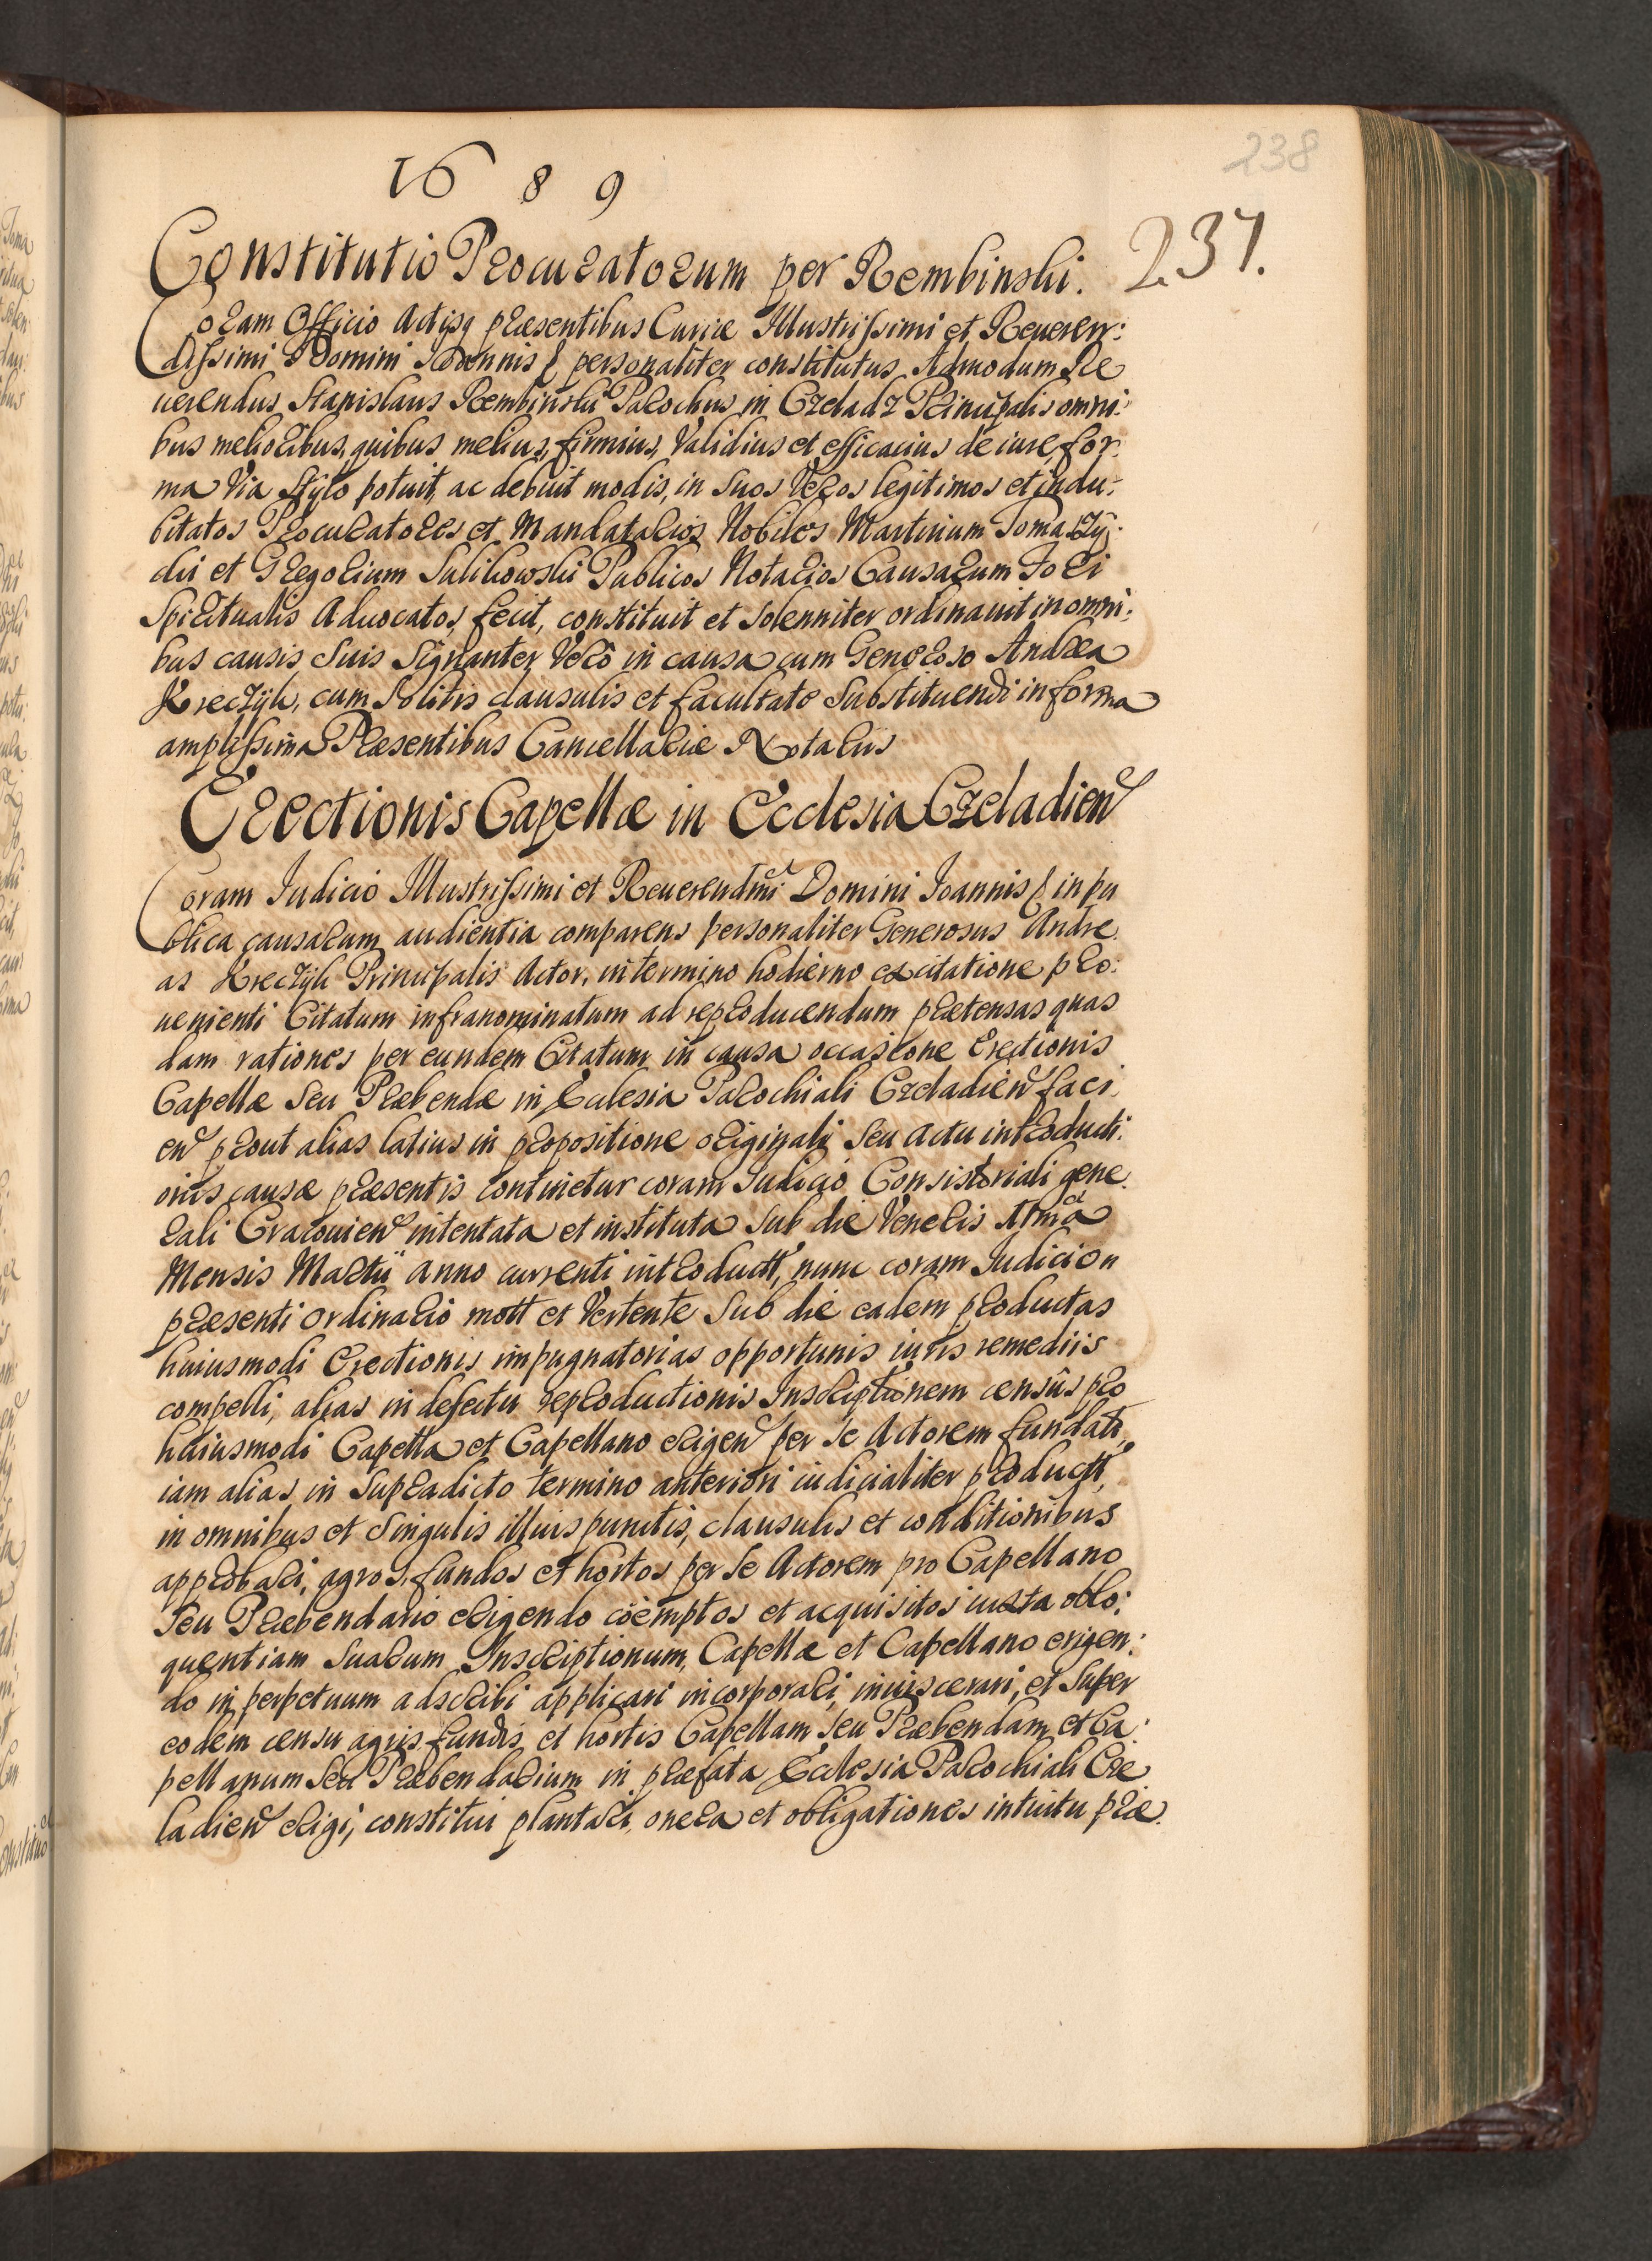 238
1689
237.
Constitutio Procuratorum per Rembinski.
Coram Officio Actisq præsentibus Curiæ Illustrissimi et Reueren:
dissimi Domini Joannis & personaliter constitutus Admodum Re
uerendus Stanislaus Rembinski Parochus in Czeladz Principalis omni:
bus melioribus, quibus melius, firmius, Validius et efficacius de iure, for:
ma Via Stylo potuit, ac debuit modis, in Suos Veros legitimos et indu:
bitatos Procuratores et Mandatarios Nobiles Martinum Tomaszy:
cki et Gregorium Sulikowski Publicos Notarios Causarum Fori
Spiritualis Aduocatos, fecit, constituit et Solenniter ordinauit in omni:
bus causis Suis Signanter Vero in causa cum Generoso Andrea
Kreczyk, cum Solitis clausulis et facultate Substituendi in forma
amplissima Præsentibus Cancellariæ Notariis
Erectionis Capellæ in Ecclesia Czeladien
Coram Judicio Illustrissimi et Reuerendmi Domini Joannis & in pu
blica causarum audientia comparens personaliter Generosus Andre
as Kreczyk Principalis Actor, in termino hodierno ex citatione pro:
uenienti Citatum infranominatum ad reproducendum prætensas quas
dam rationes per eundem Citatum in causa occasione Erectionis
Capellæ Seu Præbendæ in Ecclesia Parochiali Czeladien faci:
en prout alias latius in propositione originali Seu actu introducti:
onis causæ præsentis continetur coram Judicio Consistoriali gene:
rali Cracouien intentata et instituta Sub die Veneris
Mensis Martii anno currenti introductt, nunc coram Judicio
præsenti ordinario mott et Vertente Sub die eadem productas
huiusmodi Erectionis impugnatorias opportunis iuris remediis
compelli, alias in defectu reproductionis Inscriptionem censûs pro
huiusmodi Capella et Capellano erigen per Se Actorem fundati,
iam alias in Supradicto termino anteriori iudicialiter productt,
in omnibus et Singulis illius punctis, clausulis et conditionibus
approbari, agros, fundos et hortos per Se Actorem pro Capellano
Seu Præbendario erigendo coemptos et acquisitos iuxta oblo:
quentiam Suarum Inscriptionum, Capellæ et Capellano erigen:
do in perpetuum adscribi applicari incorporari, inuiscerari, et Super
eodem censu agris fundis et hortis Capellam Seu Præbendam et Ca:
pellanum Seu Præbendarium in præfata Ecclesia Parochiali Cze
ladien erigi, constitui plantari, onera et obligationes intuitu præ: